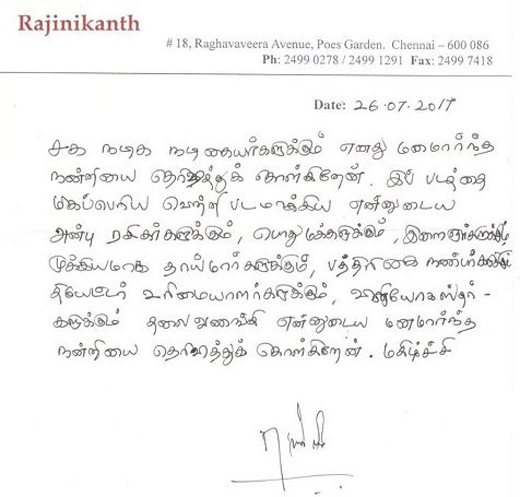 Rajinikanth
# 18, Raghavaveera Avenue, Poes Garden. Chennai – 600 086
Ph: 2499 0278 / 2499 1291 Fax: 2499 7418
Date: 26.07.2017
சக நடிக நடிகையர்களுக்கும் எனது மனமார்ந்த
நன்றியை தெரிவித்துக் கொள்கிறேன். இப் படத்தை
மிகப்பெரிய வெற்றி படமாக்கிய என்னுடைய
அன்பு ரசிகர்களுக்கும், பொதுமக்களுக்கும், இளைஞர்களுக்கும்
முக்கியமாக தாய்மார்களுக்கும், பத்திரிகை நண்பர்களுக்கும்
தியேட்டர் உரிமையாளர்களுக்கும், வினியோகஸ்தர்-
களுக்கும் தலைவணங்கி என்னுடைய மனமார்ந்த
நன்றியை தெரிவித்துக் கொள்கிறேன். மகிழ்ச்சி